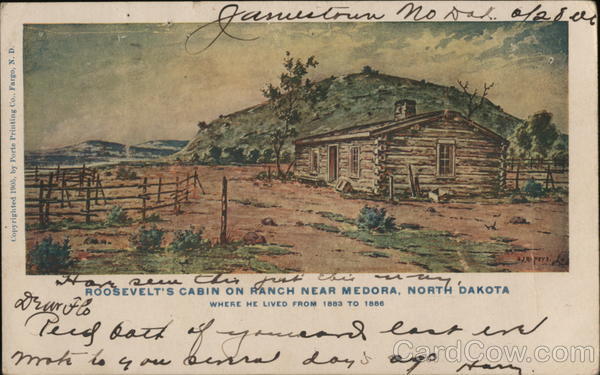 Jamestown No Dak.
Copyrighted 1905, by Porte Printing Co., Fargo, N. D.
Have seen this just this way,
ROOSEVELT'S CABIN ON RANCH NEAR MEDORA, NORTH DAKOTA
WHERE HE LIVED FROM 1883 TO 1886
Dear Flo
both of your card last eve
wrote to you several day's ago Harry
CardCow.com